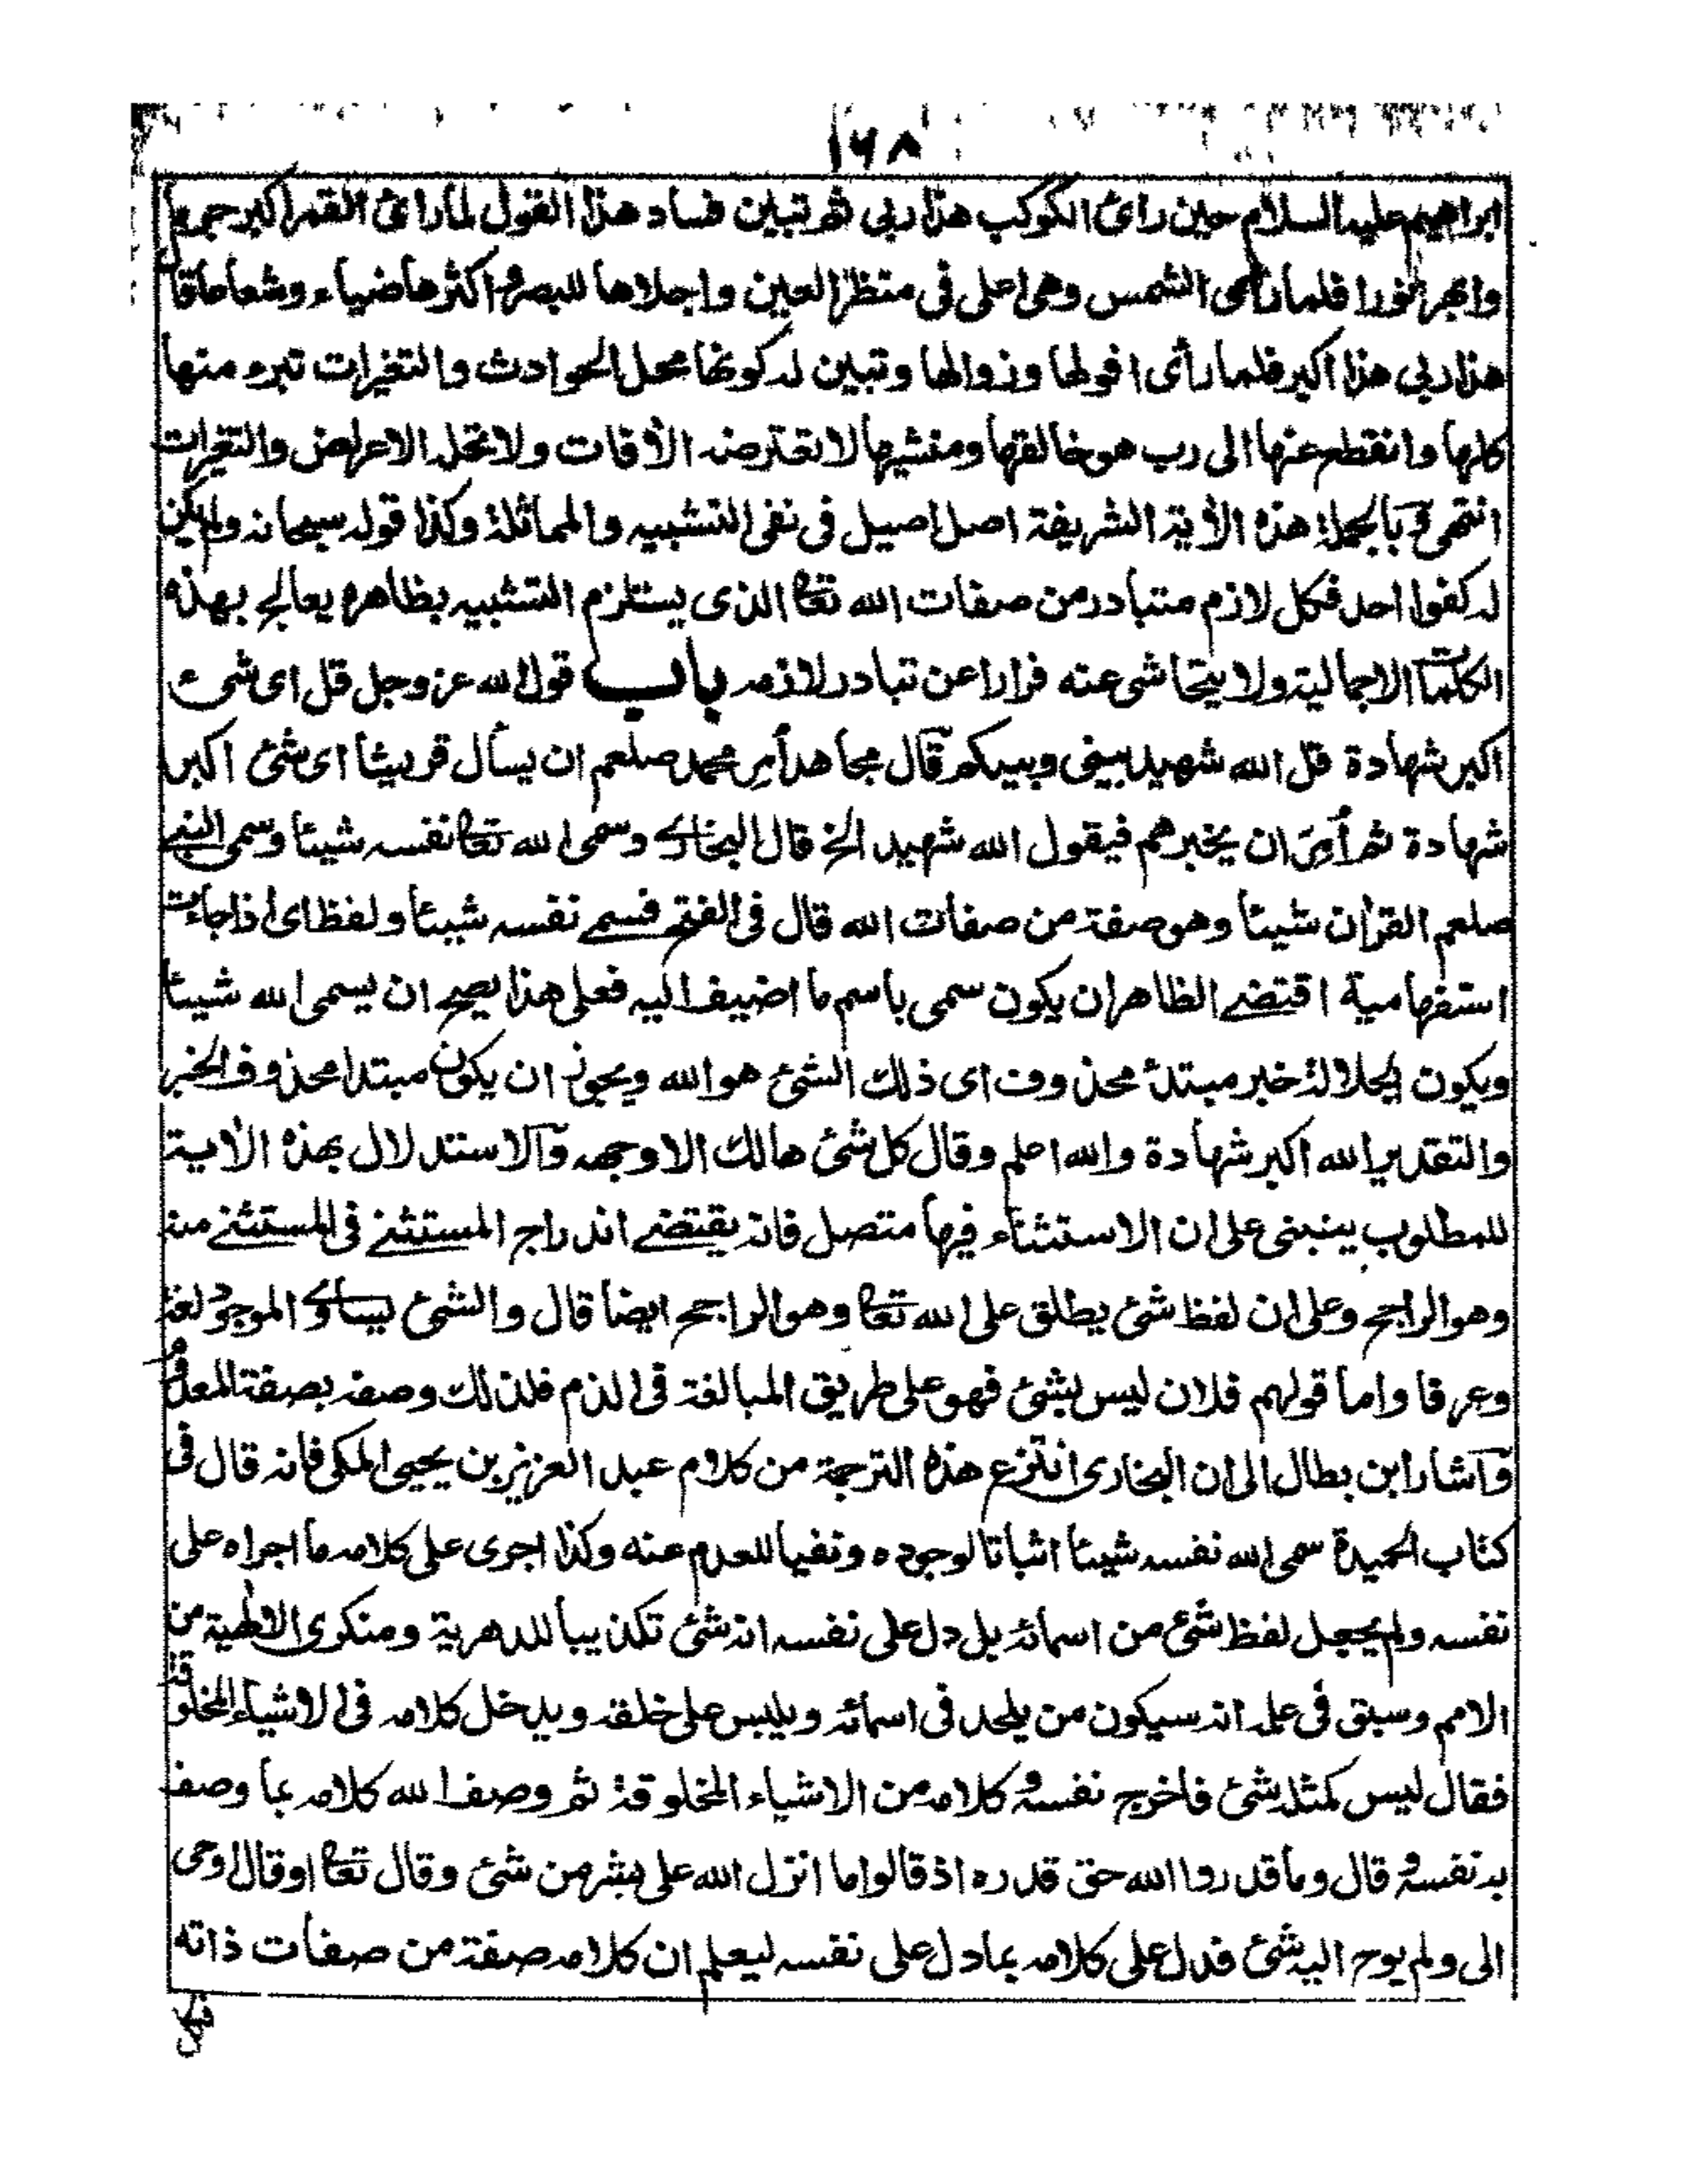 ١٦٨
ابراهيم عليه السلام حين رائ الكوكب هذا ربي ثم تبين فساد هذا القول لما رائ القمر اكبر جرما
وابهر نورا فلما رأى الشمس وهى اعلى فى منظر العين واجلاها للبصر واكثرها ضياء وشعاعا قال
هذا ربي هذا اكبر فلما رأى افولها وزوالها وتبين له كونها محل الحوادث والتغيرات تبرء منها
كلها وانقطع عنها الى رب هو خالقها ومنشيها لا تعترضه الآفات ولا تحله الاعراض والتغيرات
انتهى وبالجملة هذه الآية الشريفة اصل اصيل فى نفى التشبيه والمماثلة وكذا قوله سبحانه ولم يكن
له كفوا احد فكل لازم متبادر من صفات الله تعا الذى يستلزم التشبيه بظاهره يعالج بهذه
الكلمات الاجمالية ولا يتحاشى عنه فرارا عن تبادر لازمه باب قول الله عز وجل قل اى شئ
اكبر شهادة قل الله شهيد بينى وبينكم قال مجاهد أمر محمد صلعم ان يسأل قريشا اى شئ اكبر
شهادة ثم أمره ان يخبرهم فيقول الله شهيد الخ قال البخارى وسمى الله تعا نفسه شيئا وسمى النبي
صلعم القرأن شيئا وهو صفة من صفات الله قال فى الفتح فسمى نفسه شيئا ولفظ اى اذا جاءت
استفهامية اقتضى الظاهر ان يكون سمى باسم ما اضيف اليه فعلى هذا يصح ان يسمى الله شيئا
ويكون الجلالة خبر مبتدأ محذوف اى ذلك الشئ هو الله ويجوز ان يكون مبتدا محذوف الخبر
والتقدير الله اكبر شهادة والله اعلم وقال كل شئ هالك الا وجهه والاستدلال بهذه الآية
للمطلوب ينبنى على ان الاستثناء فيها متصل فانه يقتضى اندراج المستثنى فى المستثنى منه
وهو الراجح وعلى ان لفظ شئ يطلق على الله تعا وهو الراجح ايضا قال والشئ يساوى الموجود لغة
وعرفا واما قولهم فلان ليس بشئ فهو على طريق المبالغة فى الذم فلذلك وصفه بصفة المعدوم
واشار ابن بطال الى ان البخارى انتزع هذه الترجمة من كلام عبد العزيز بن يحيى المكى فانه قال فى
كتاب الحيدة سمى الله نفسه شيئا اثباتا لوجوده ونفيا للعدم عنه وكذا اجرى على كلامه ما اجراه على
نفسه ولم يجعل لفظ شئ من اسمائه بل دل على نفسه انه شئ تكذيبا للدهرية ومنكرى الالهية من
الامم وسبق فى علمه انه سيكون من يلحد فى اسمائه ويلبس على خلقه ويدخل كلامه فى الاشياء المخلوقة
فقال ليس كمثله شئ فاخرج نفسه وكلامه من الاشياء المخلوقة ثم وصف الله كلامه بما وصف
به نفسه وقال وما قدروا الله حق قدره اذ قالوا ما انزل الله على بشر من شئ وقال تعا او قال اوحى
الى ولم يوح اليه شئ فدل على كلامه بما دل على نفسه ليعلم ان كلامه صفة من صفات ذاته
فكل